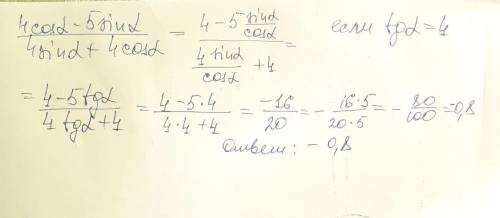 (4cosα - 5sinα)/(4sinα + 4cosα) = (4 - 5 sinα/cosα)/(4 sinα/cosα + 4) = если tgα = 4
= (4 - 5tgα)/(4tgα + 4) = (4 - 5·4)/(4·4 + 4) = -16/20 = - 16·5/20·5 = - 80/100 = -0,8
Ответ: - 0,8